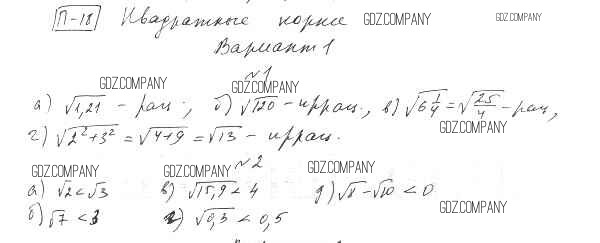 П-18 Квадратные корни GDZ.COMPANY GDZ.COMPANY
Вариант 1
GDZ.COMPANY GDZ.COMPANY №1
а) √1,21 - рац., б) √120 - иррац., в) √6 1/4 = √25/4 - рац,
г) √2²+3² = √4+9 = √13 - иррац. GDZ.COMPANY
GDZ.COMPANY GDZ.COMPANY №2 GDZ.COMPANY
а) √2 < √3 в) √15,9 < 4 д) √8 - √10 < 0
б) √7 < 3 г) √0,3 < 0,5 GDZ.COMPANY